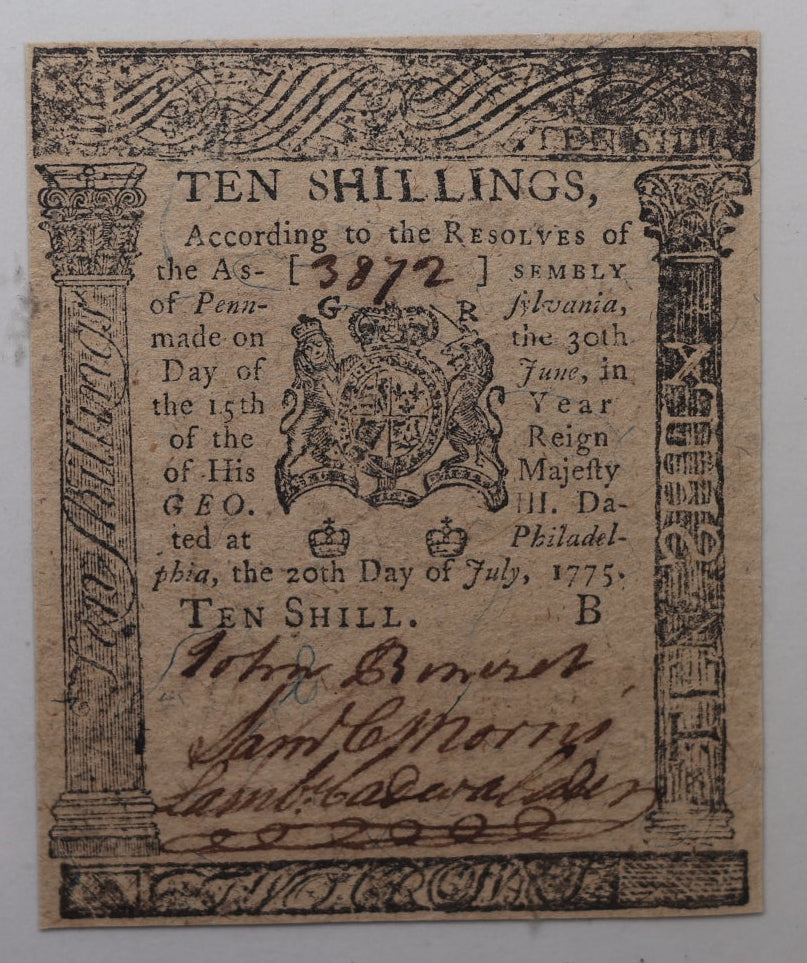 TEN SHILL
TEN SHILLINGS,
According to the RESOLVES of
the As- [ 3872 ] SEMBLY
of Penn- G R ſylvania,
made on the 30th
Day of June, in
the 15th Year
of the Reign
of His Majeſty
GEO. III. Da-
ted at Philadel-
phia, the 20th Day of July, 1775.
TEN SHILL. B
John
Saml C Morris
Lambt Cadwalader
Ten Shillings